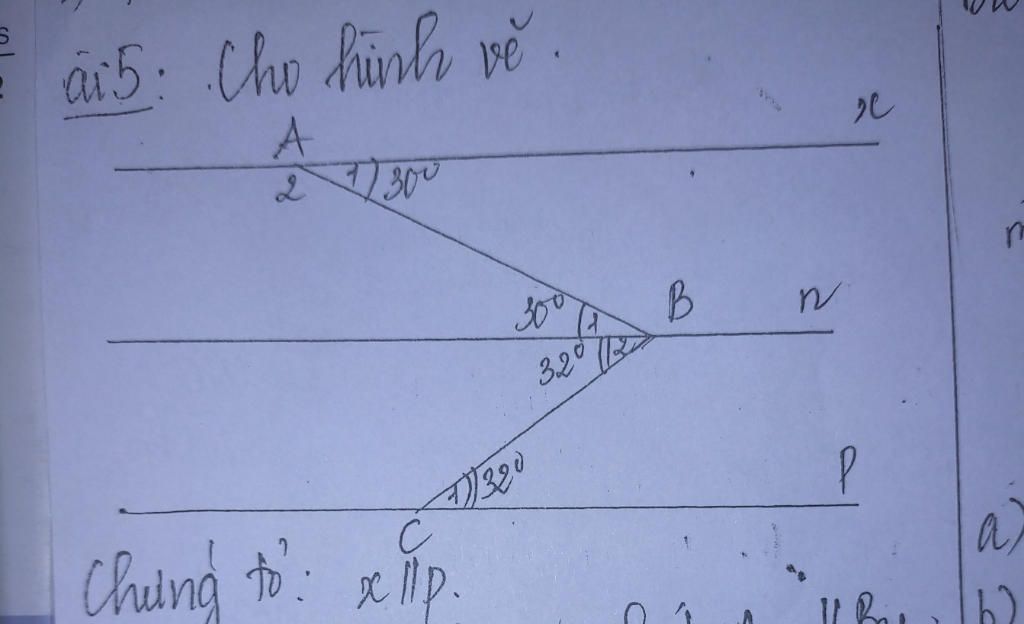 ài 5: Cho hình vẽ.
A
x
2
1
30°
30°
1
B
n
32°
2
1
32°
P
C
a)
Chứng tỏ: x // p.
b)